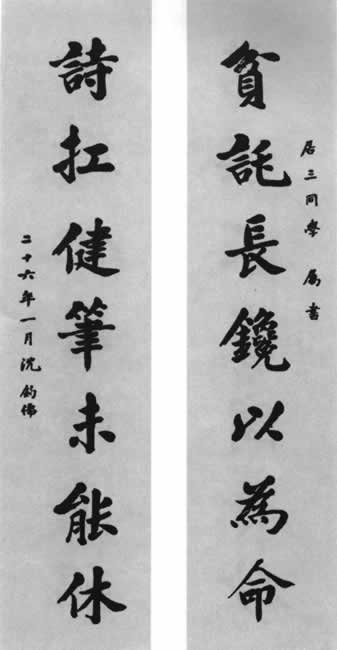 貧託長鑱以為命
居三同學 屬書
詩扛健筆未能休
二十六年一月沈